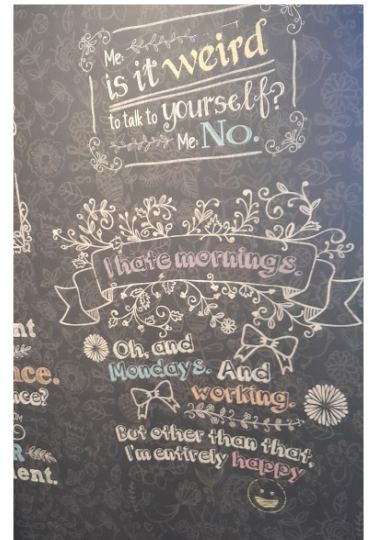 Me:
is it weird
to talk to yourself?
Me: No.
I hate mornings.
Oh, and
Mondays. And
working.
But other than that,
I'm entirely happy
nt
ce.
ce?
R
ent.